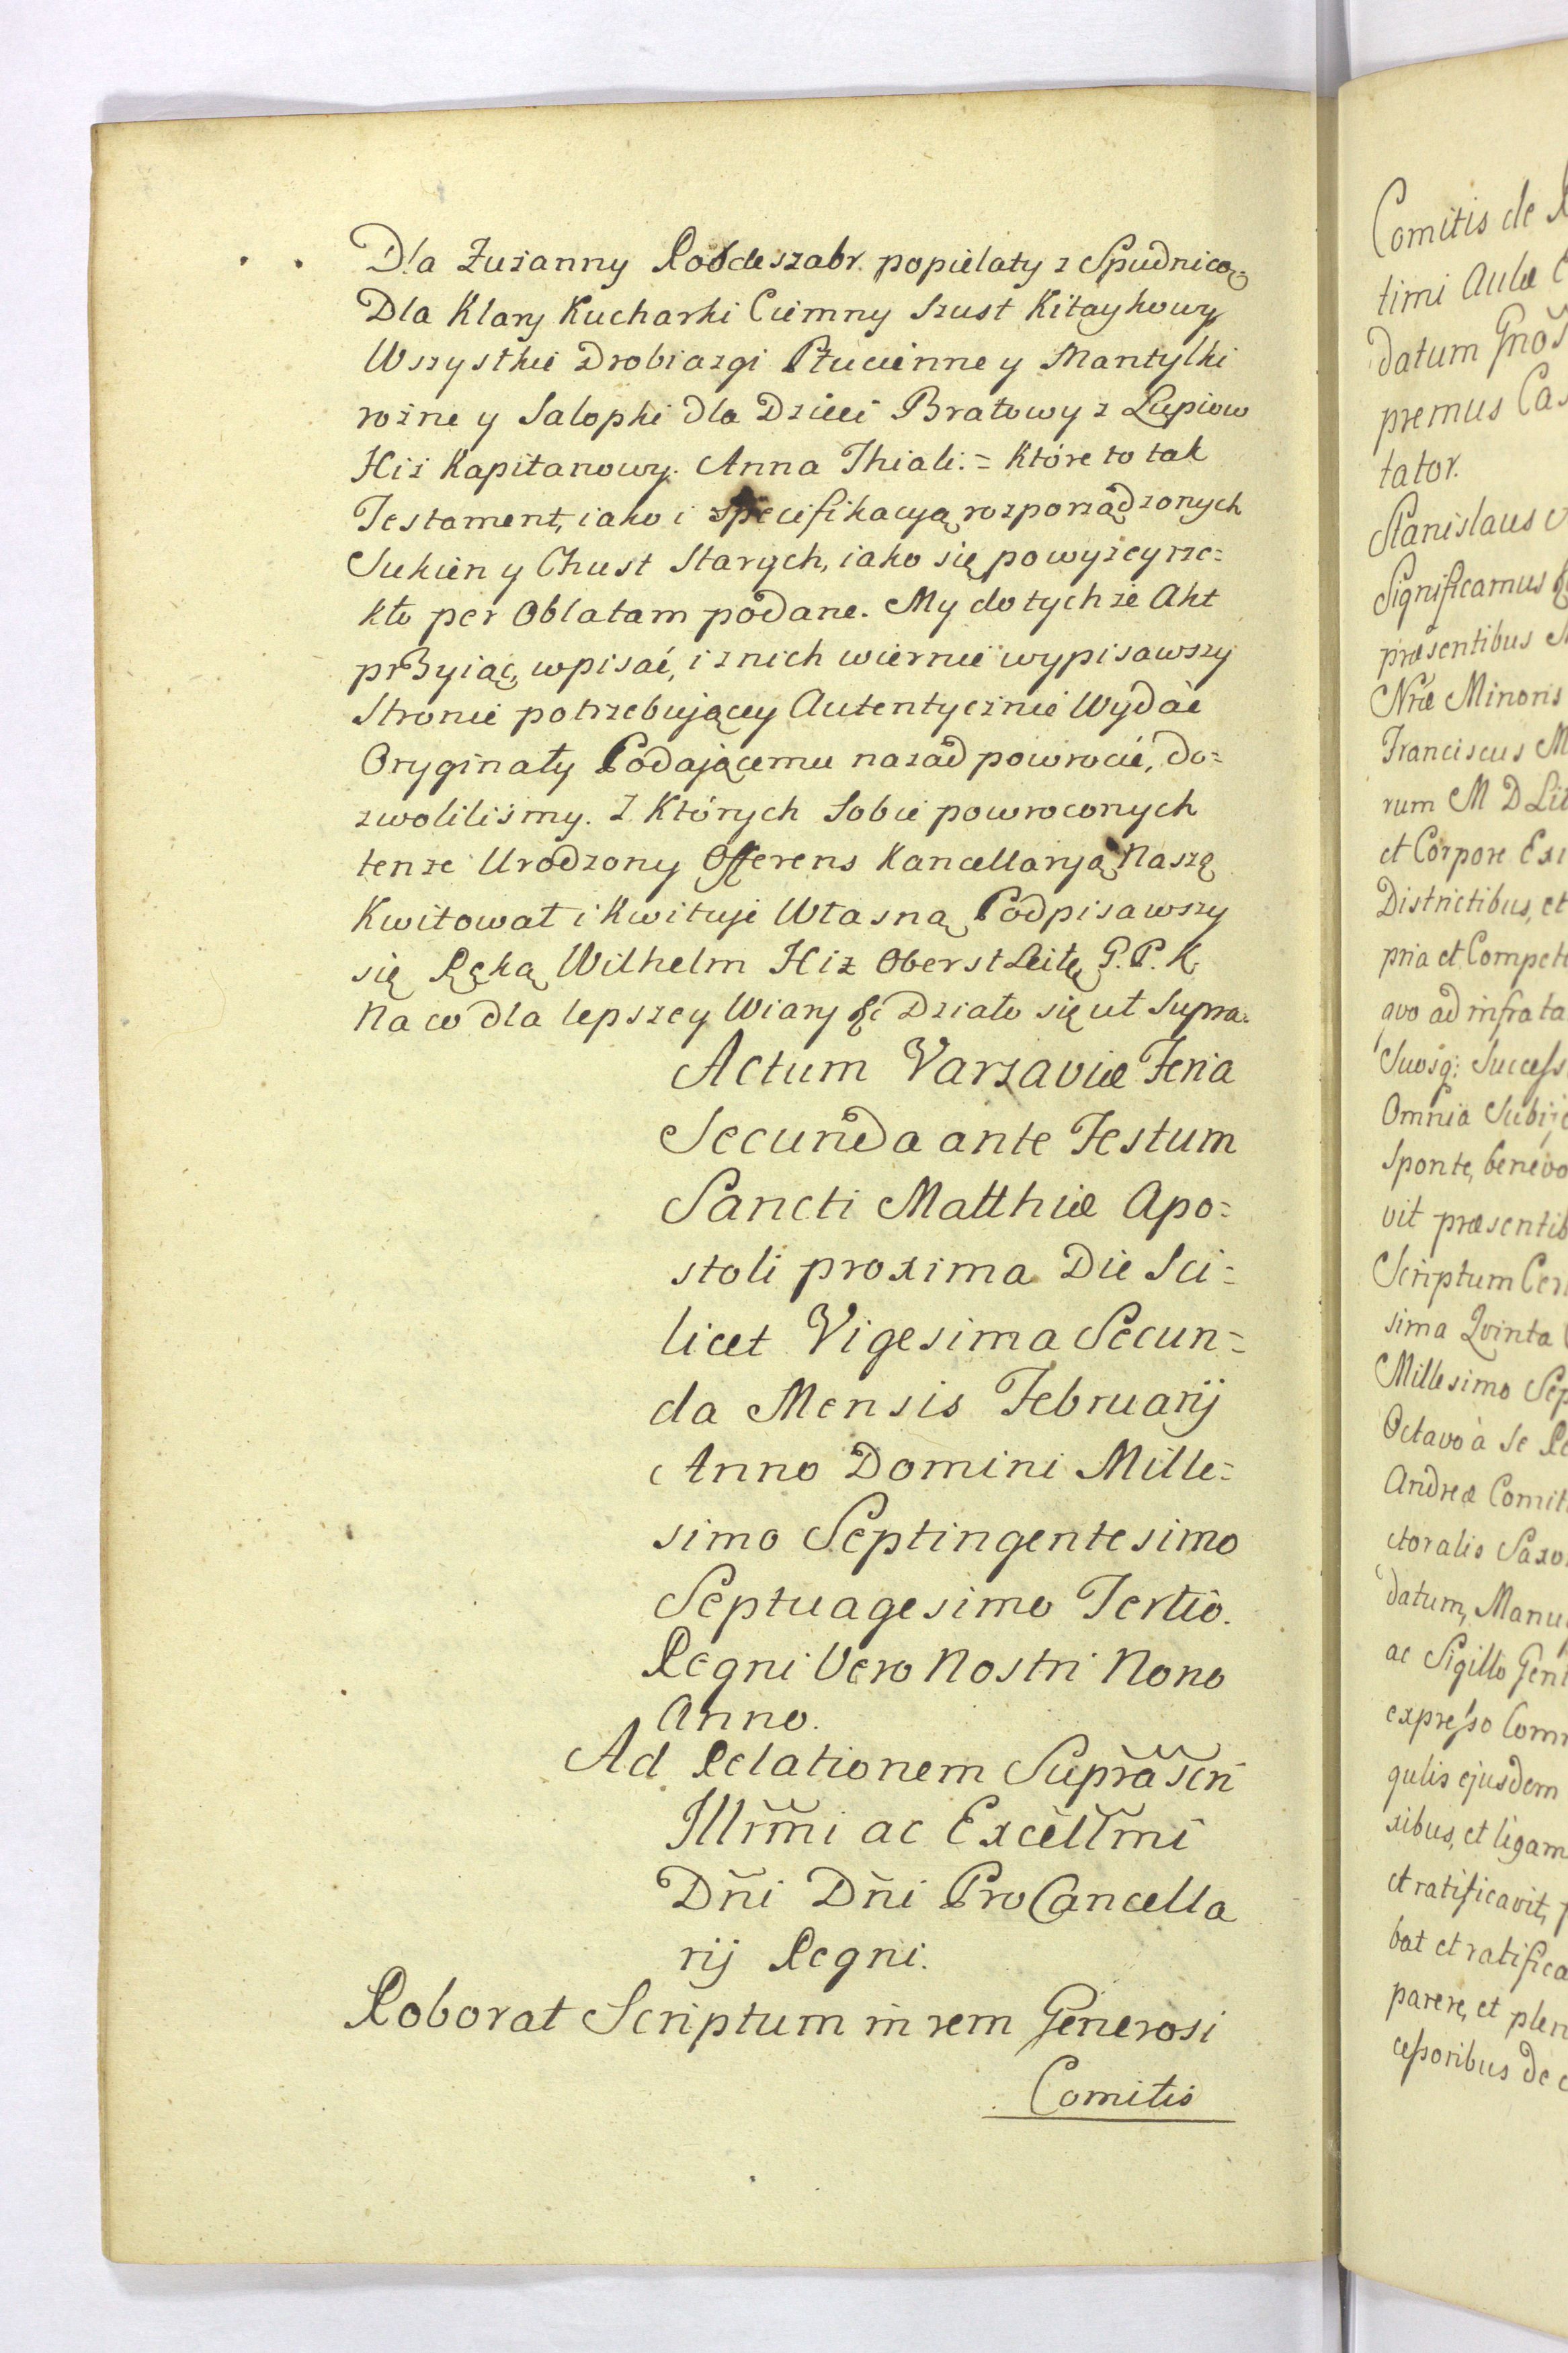 Dla Zuzanny Robdeszabr. popielaty z Spudnicą
Dla Klary Kucharki Ciemny Szust Kitaykowy
Wszystkie Drobiazgi Płucienne y Mantylki
rożne y Salopki dla Dzieci Bratowy z Lupiow
Hiż Kapitanowy. Anna Thiali. = Które to tak
Testament, iako i specifikacyą rozporządzonych
Sukien y Chust Starych, iako się powyżey rze=
kło per Oblatam podane. My do tychże Akt
przyiąć, wpisać, i z nich wiernie wypisawszy
Stronie potrzebującey Autentycznie Wydać
Oryginały Podającemu nazad powrocić, do=
zwoliliśmy. Z Których Sobie powroconych
tenże Urodzony Offerens Kancellaryą Naszą
Kwitował i Kwituje Własną Podpisawszy
się Ręką Wilhelm Hiż OberstLeitę G. P. K.
Na co dla lepszey Wiary &c Działo się ut Supra.
Actum Varsaviæ Feria
Secunda ante Festum
Sancti Matthiæ Apo=
stoli proxima Die Sci=
licet Vigesima Secun=
da Mensis Februarij
Anno Domini Mille=
simo Septingentesimo
Septuagesimo Tertio.
Regni Vero Nostri Nono
Anno.
Ad Relationem Supra Scri
Illrm̃i ac Excellm̃i
Dñi Dñi ProCancella
rij Regni.
Roborat Scriptum in rem Generosi
Comitis
Comitis de
timi Aulæ
datum Gnos
premus
tator.
Stanislaus
Significamus
præsentibus
Nræ Minoris
Franciscus M
rum M D Lit
et Corpore Exi
Districtibus, et
pria et Compete
quo ad infrata
Suosq: Success
Omnia Subij
Sponte, benevo
vit præsentib
Scriptum Cer
sima Quinta
Millesimo Sep
Octavo à Se
Andreæ Comit
ctoralis Saxo
datum, Manu
ac Sigillo Gent
expresso Com
gulis ejusdem
xibus, et ligam
et ratificavit,
bat et ratifica
parere, et plen
cessoribus de